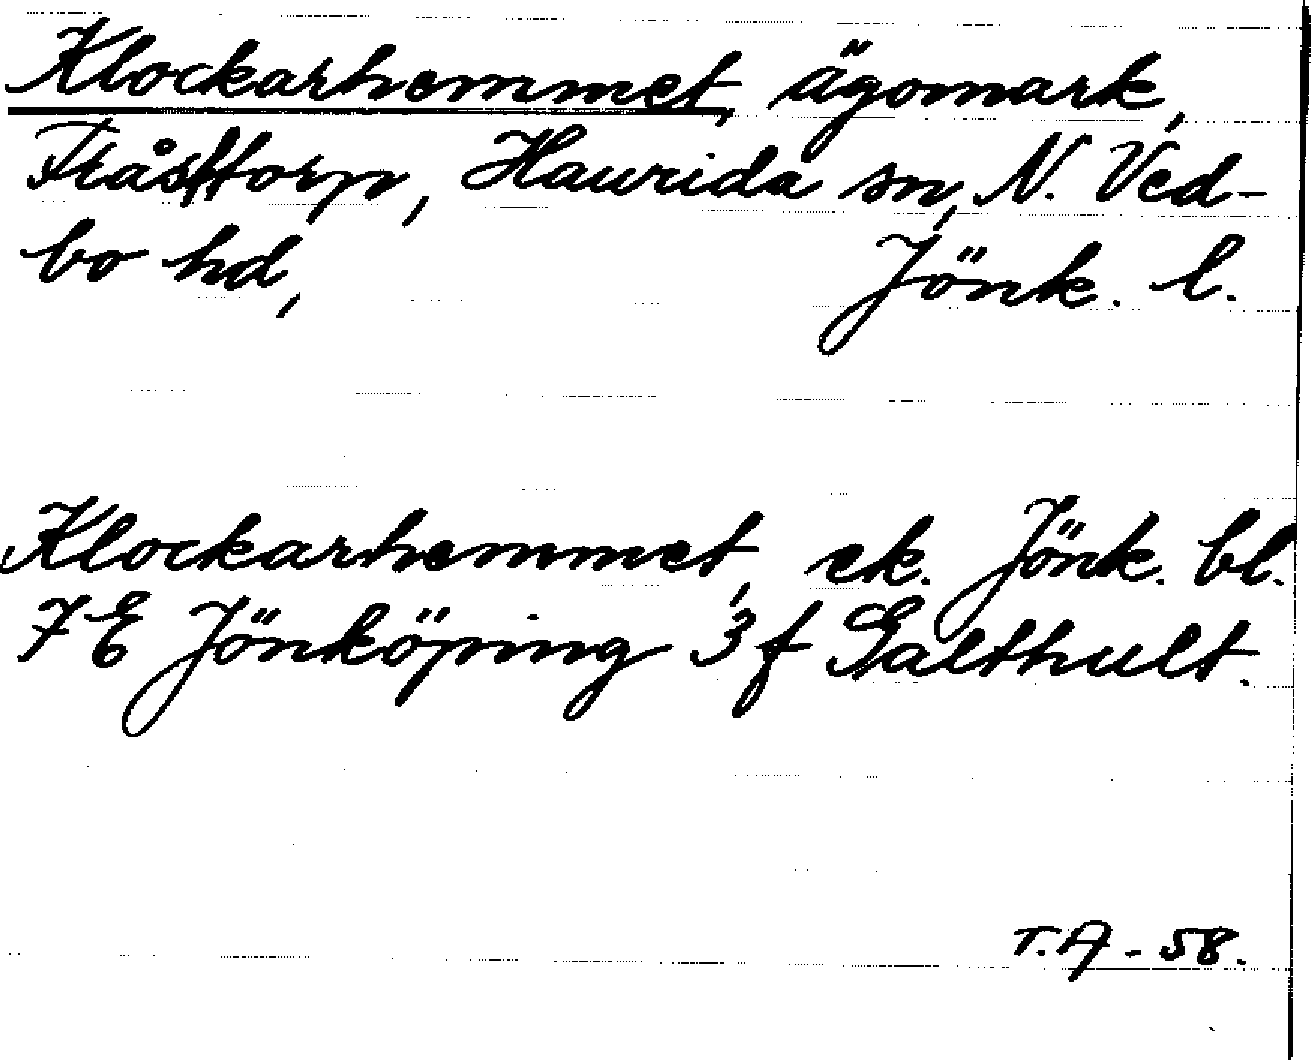 Klockarhemmet, ägomark,
Fråsttorp, Haurida sn, N. Ved-
bo hd, Jönk. l.
Klockarhemmet, ek. Jönk. bl.
7E Jönköping 3f Galthult.
T.A - 58.